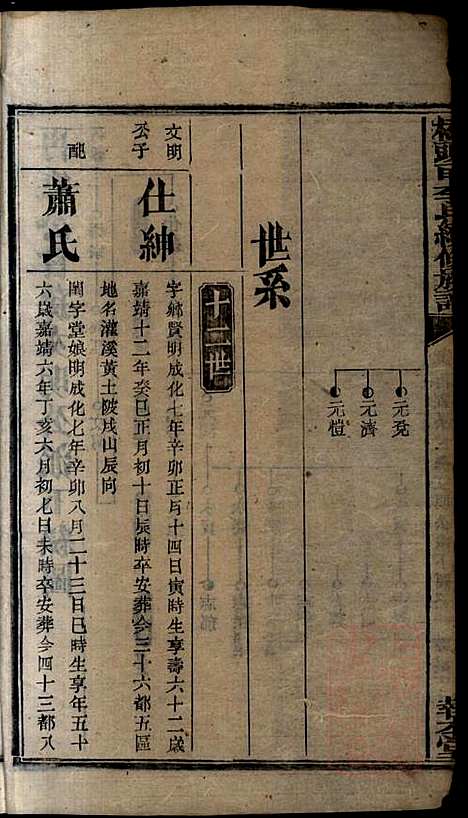 元兗
元濟
元愷
世系
十二世
文明
公子
仕紳
字鄉賢明成化七年辛卯正月十四日寅時生享壽六十二歲
嘉靖十二年癸巳正月初十日辰時卒安葬今三十六都五區
地名灌溪黃土陂戌山辰向
配
蕭氏
閨字堂娘明成化七年辛卯八月二十三日巳時生享年五十
六歲嘉靖六年丁亥六月初七日未時卒安葬今四十三都八